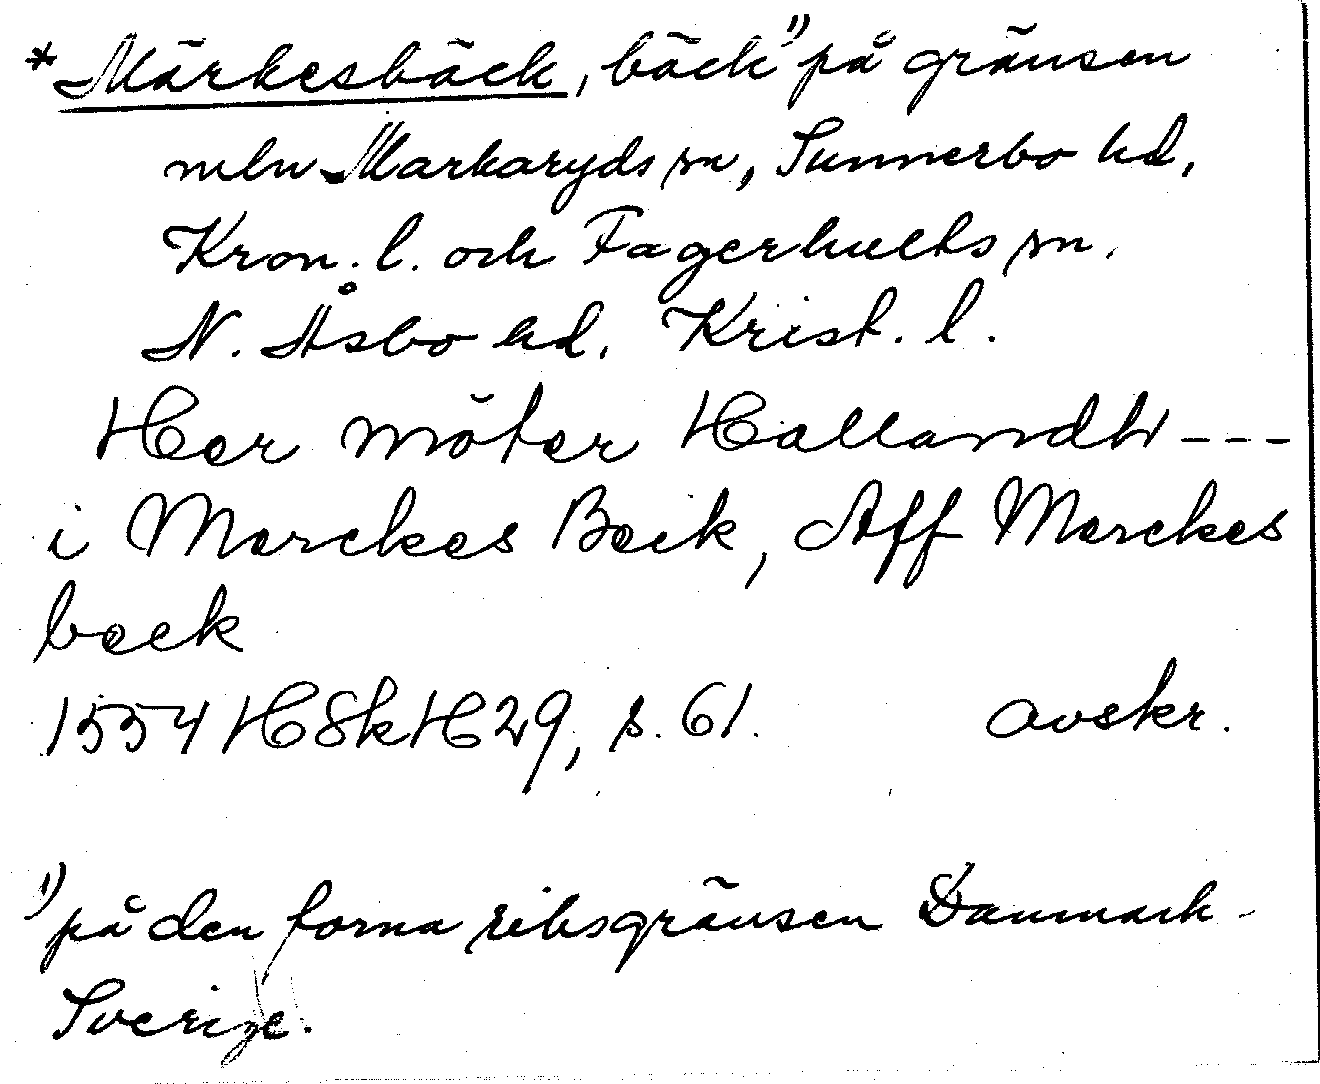 *Märkesbäck, bäck 1) på gränsen
mln Markaryds sn, Sunnerbo hd,
Kron. l. och Fagerhults sn.
N. Åsbo hd. Krist. l.
Her möter Hallandh ---
i Merckes Beck, Aff Merckes
beck
1554 HSkH29, s. 61. avskr.
1) på den forna riksgränsen Danmark-
Sverige.